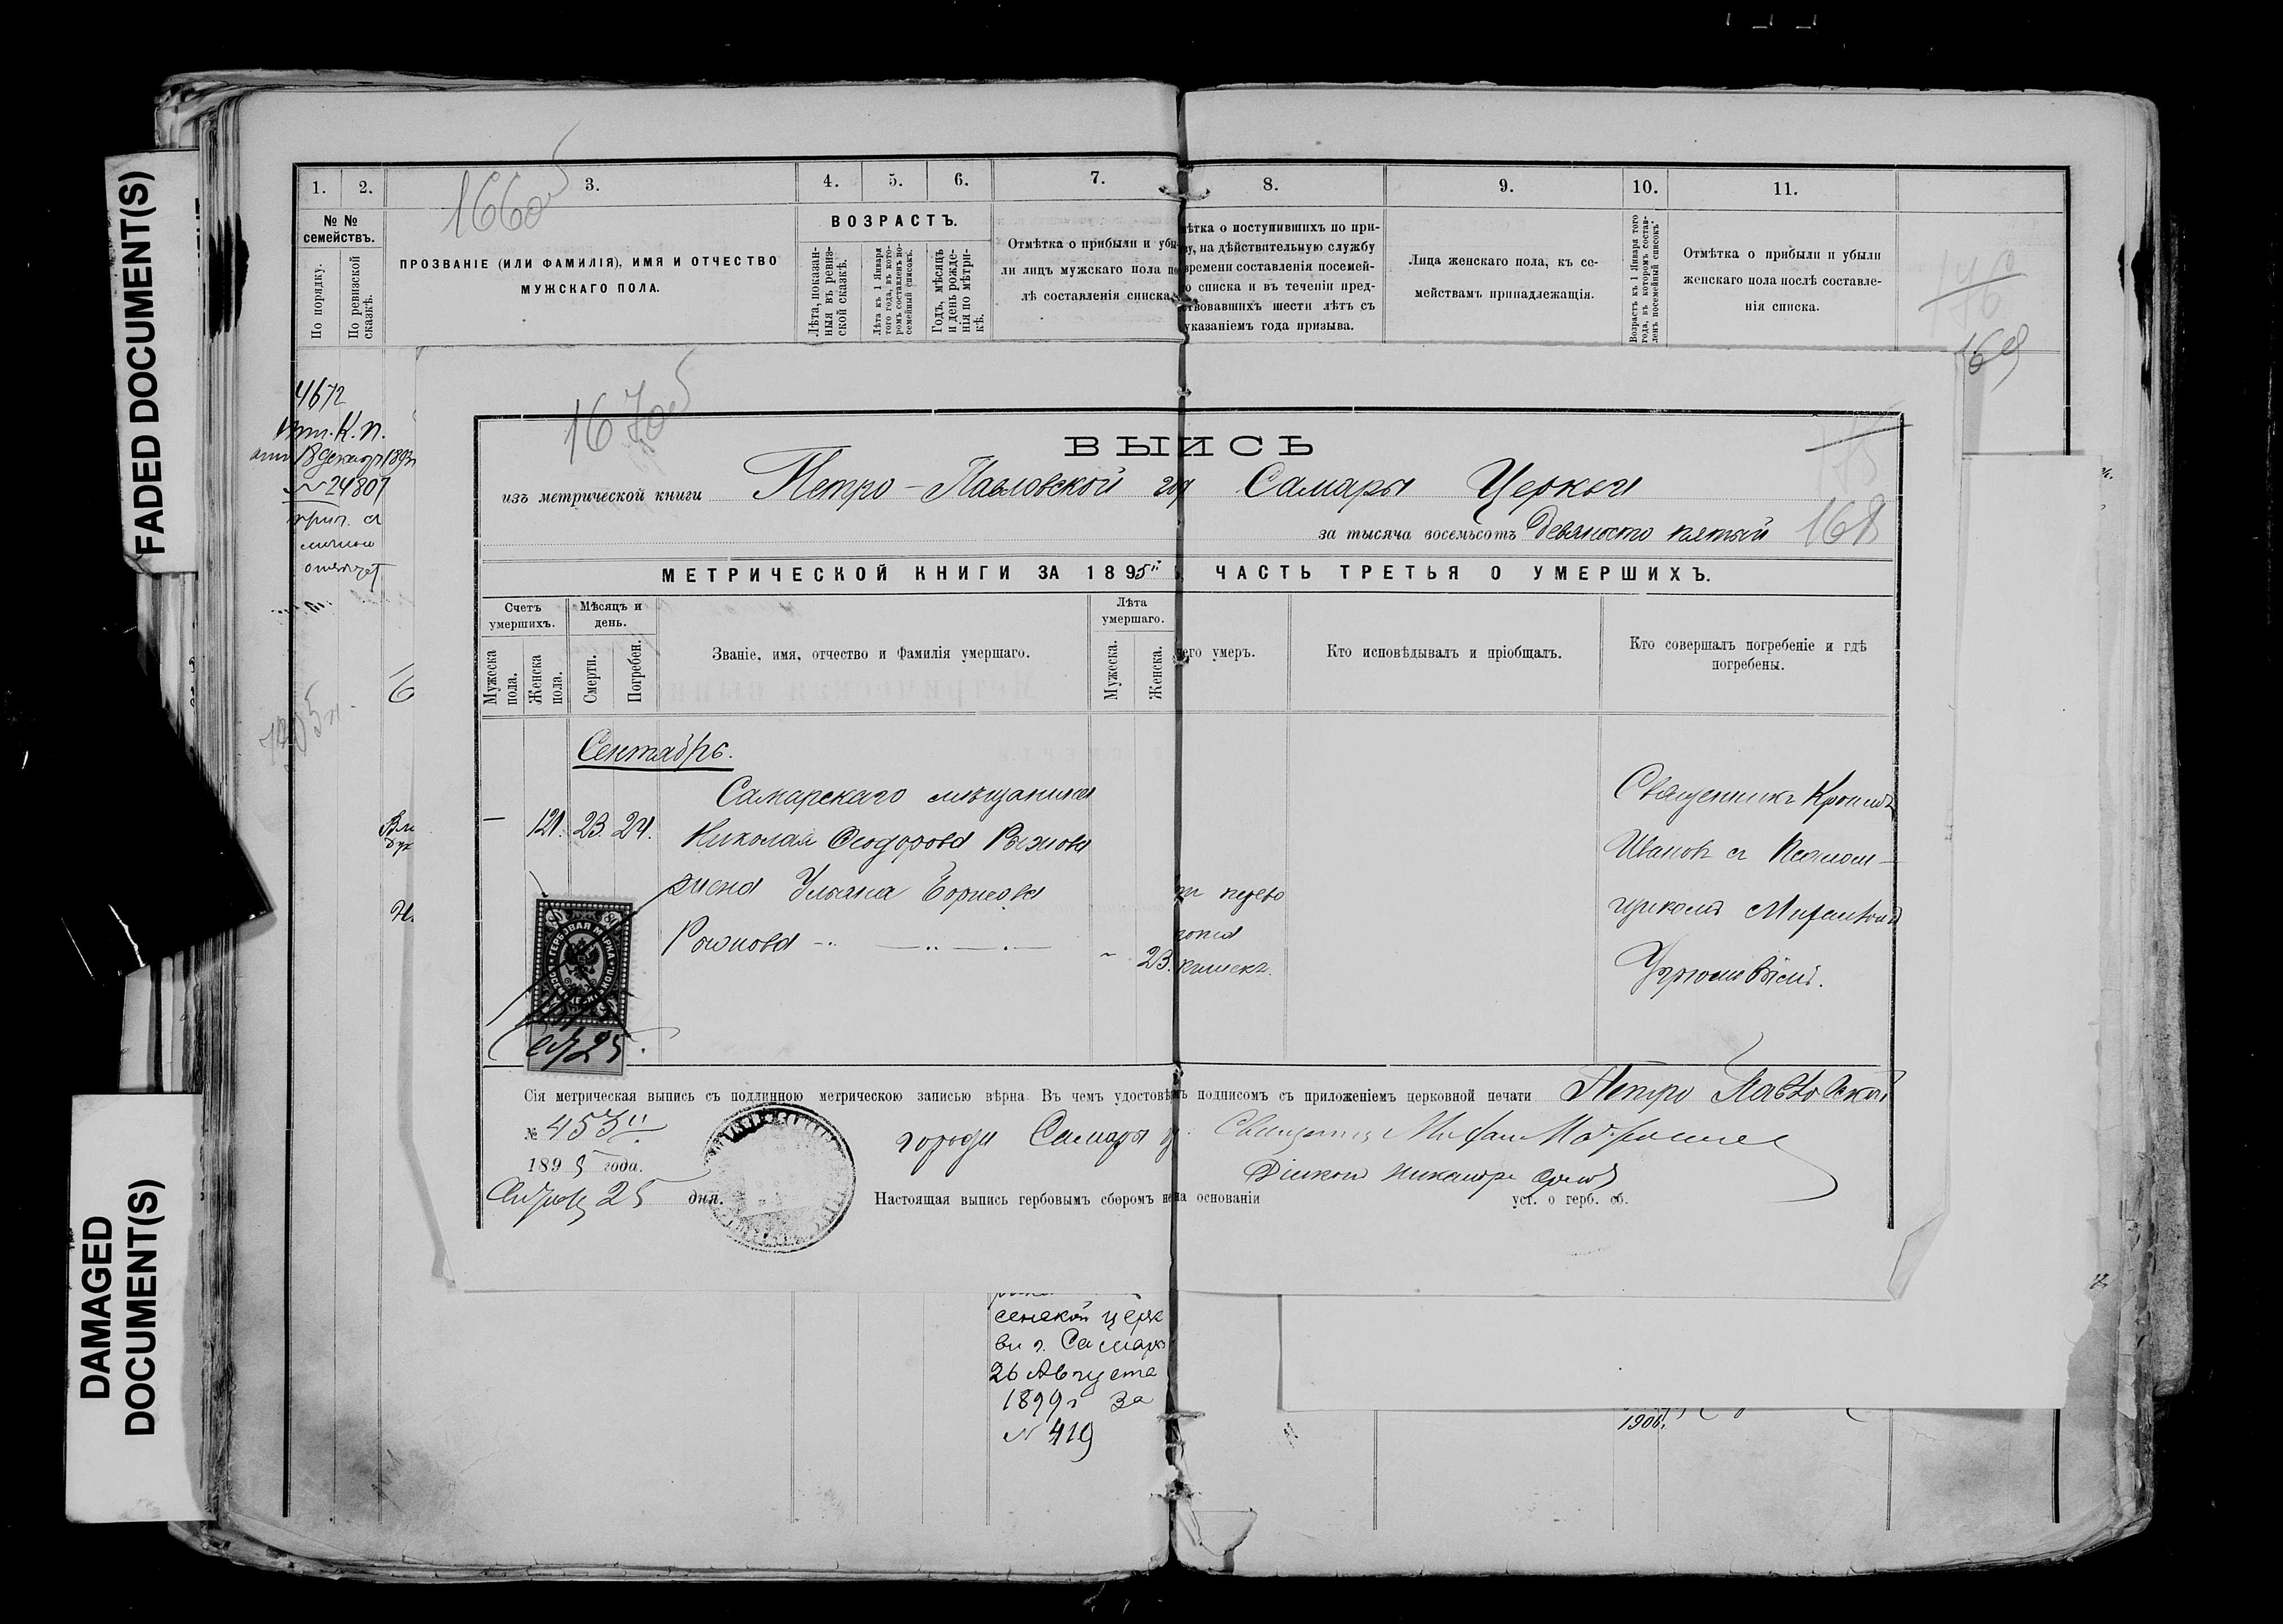 FADED DOCUMENT(S)
DAMAGED
DOCUMENT(S)
1. 2. 3. 4. 5. 6. 7. 8. 9. 10. 11.
1660б
№ №
семействъ.
По порядку.
По ревизской
сказкѣ.
ПРОЗВАНІЕ (ИЛИ ФАМИЛІЯ), ИМЯ И ОТЧЕСТВО
МУЖСКАГО ПОЛА.
ВОЗРАСТЪ.
Лѣта, показан-
ныя въ ревиз-
ской сказкѣ.
Лѣта къ 1 Января
того года, въ кото-
ромъ составленъ по-
семейный списокъ.
Годъ, мѣсяцъ
и день рожде-
нія по метри-
кѣ.
Отмѣтка о прибыли и убы-
ли лицъ мужскаго пола по
лѣ составленія списка
ѣтка о поступившихъ по при-
ву, на дѣйствительную службу
времени составленія посемей-
о списка и въ теченіи пред-
ствовавшихъ шести лѣтъ съ
указаніемъ года призыва.
Лица женскаго пола, къ се-
мействамъ принадлежащія.
Возрастъ къ 1 Января того
года, въ которомъ состав-
ленъ посемейный списокъ
Отмѣтка о прибыли и убыли
женскаго пола послѣ составле-
нія списка.
176
169
4672
К. п.
18 декабр 1893
№ 24807
1670б
ВЫПИСЬ
изъ метрической книги Петро-Павловской гор Самары Церкви
за тысяча восемьсотъ девяносто пятый
168
МЕТРИЧЕСКОЙ КНИГИ ЗА 1895й ЧАСТЬ ТРЕТЬЯ О УМЕРШИХЪ.
Счетъ
умершихъ.
Мужеска
пола.
Женска
пола.
Мѣсяцъ и
день.
Смерти.
Погребен.
Званіе, имя, отчество и Фамилія умершаго.
Лѣта
умершаго.
Мужеска.
Женска.
чего умеръ.
Кто исповѣдывалъ и пріобщалъ.
Кто совершалъ погребеніе и гдѣ
погребены.
Сентябрь.
Самарскаго мѣщанина
— 121. 23. 24. Николая Ѳеодорова Рыжова
жена Ульяна Борисова
Рыжова
23.
Священникъ Кронидъ
Ивановъ съ Псалом-
щикомъ
ГЕРБОВАЯ МАРКА
25
Сія метрическая выпись съ подлинною метрическою записью вѣрна. Въ чемъ удостовѣ подписомъ съ приложеніемъ церковной печати Петро Павловской
№ 453
города Самары Священникъ
1895 года.
Діаконъ Никаноръ
25 дня.
Настоящая выпись гербовымъ сборомъ не на основаніи уст. о герб. сб.
сенской церк
ви г. Самары
26 Августа
1899г за
№ 419
1906.